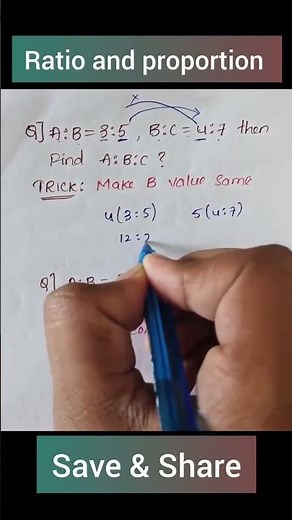 Ratio and proportion
Q] A:B = 3:5, B:C = 4:7 then
Find A:B:C ?
TRICK: Make B value Same
4(3:5) 5(4:7)
12:2
Q] A:B =
Save & Share